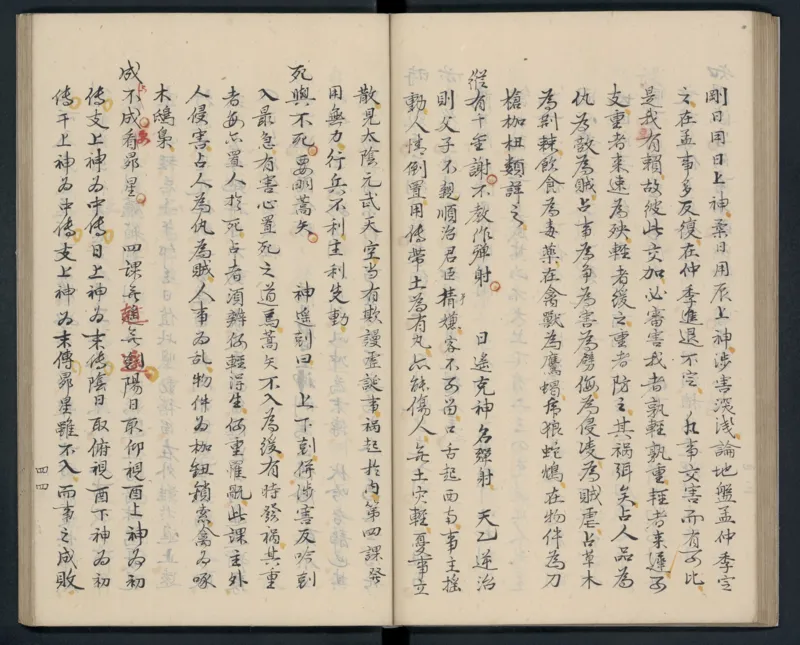 剛日用日上神柔日用辰上神涉害深淺論地盤孟仲季定
之在孟事多反復在仲季進退不定 凡事交害而有可比
是我有賴故彼此交加必審害我者孰輕孰重輕者来遲可
支重者来速為殃輕者後之重者防之其禍弭矣占人品為
仇為敵為賊占事為爭為害為劈傷為侵凌為賊虐占草木
為荆棘飲食為毒藥在禽獸為鷹蝎虎狼蛇鴆在物件為刀
槍枷杻類詳之
縱有十至謝不教作彈射 日遙克神名彈射 天乙逆治
則父子不親順治君臣猜嫌客不可留口舌起西南事主搖
動人情倒置用傳帶土為有丸亦能傷人無土災輕憂事立
散見太陰元武天空當有欺謾虛誕事禍起於内第四課發
用無力行兵不利主利先動
死與不死要明蒿矢 神遙剋曰 上下剋併涉害反吟剋
入最急有害心置死之道焉蒿矢不入為緩有時發禍其重
者每亦置人於死占者須辨傷輕得生傷重罹 此課主外
人侵害占人為仇為賊人事為乱物件為枷鈕鎖索禽為啄
木鴟梟
成不成看昴星 四課無 無剋陽日取仰視酉上神為初
傳支上神為中傳日上神為末傳陰日取俯視酉下神為初
傳干上神為中傳支上神為末傳昴星雖不入而事之成敗
四四